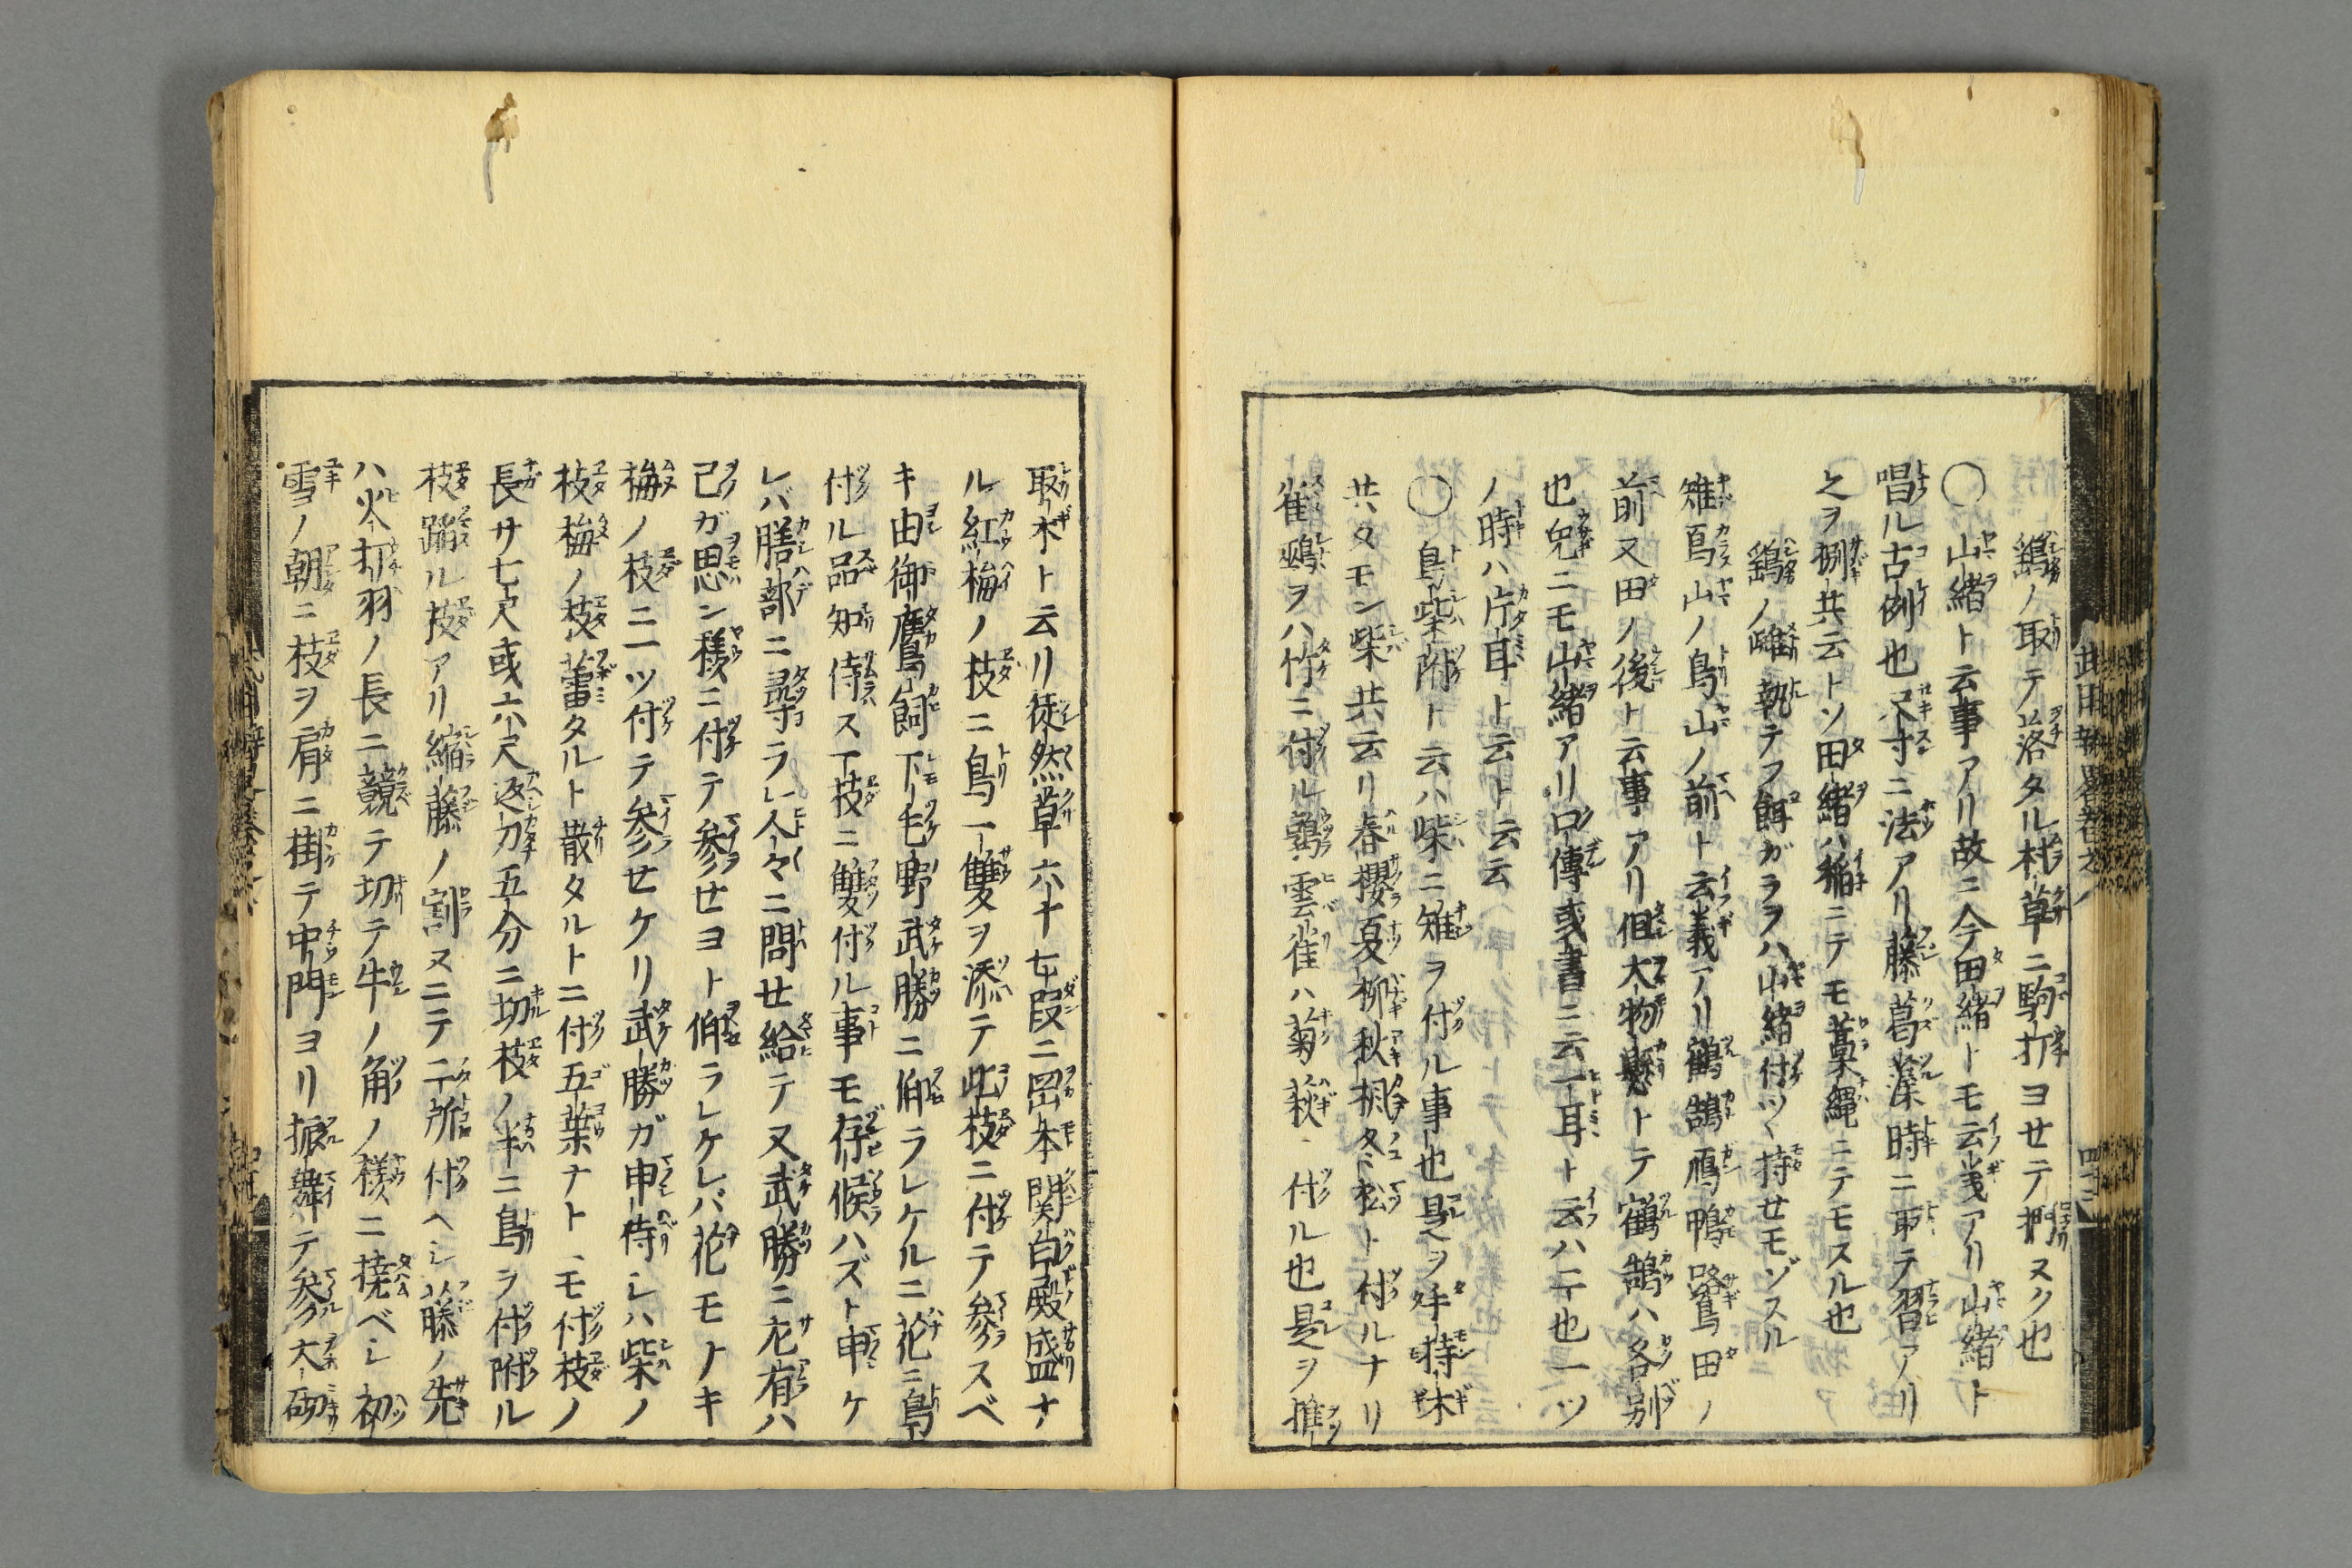 鷂ノ取テ落タル村草ニ駒打ヨセテ押ヌク也
○山緒ト云事アリ故ニ今田緒トモ云義アリ山緒ト
唱ル古例也尺寸ニ法アリ藤葛藻時ニ取テ習アリ
之ヲ捌共云トソ田緒ハ稲ニテモ藁縄ニテモスル也
鷂ノ雌執テフ餌ガラヲハ山緒付ツヽ持セモゾスル
雉鳥山ノ鳥山ノ前ト云義アリ鶴鵠鴈鴨鷺田ノ
前又田ノ後ト云事アリ但大物懸トテ鶴鵠ハ各別
也兎ニモ山緒アリ口傳或書ニ云一耳ト云ハ二也一ツ
ノ時ハ片耳ト云ト云云
○鳥柴附ト云ハ柴ニ雉ヲ付ル事也是ヲ手持木
共タモン柴共云リ春櫻夏柳秋楓冬松ト付ルナリ
雀鵐ヲハ竹ニ付ル鶉雲雀ハ菊萩ニ付ル也是ヲ推
取木ト云リ徒然草六十七段ニ岡本関白殿盛ナ
ル紅梅ノ枝ニ鳥一雙ヲ添テ此枝ニ付テ参スベ
キ由御鷹飼下毛野武勝ニ仰ラレケルニ花ニ鳥
付ル品知侍ス一枝ニ雙付ル事モ存候ハズト申ケ
レバ膳部ニ尋ラレ人々ニ問せ給テ又武勝ニ左有ハ
己ガ思ン様ニ付テ参せヨト仰ラレケレバ花モナキ
梅ノ枝ニ一ツ付テ参せケリ武勝ガ申侍シハ柴ノ
枝梅ノ枝蕾タルト散タルトニ付五葉ナトヽモ付枝ノ
長サ七尺或六尺返刀五分ニ切枝ノ半ニ鳥ヲ付附ル
枝蹈ル枝アリ縮藤ノ割ヌニテ二所付ヘシ藤ノ先
ハ火打羽ノ長ニ競テ切テ牛ノ角ノ様ニ撓ベシ初
雪ノ朝ニ枝ヲ肩ニ掛テ中門ヨリ振舞テ参大砌